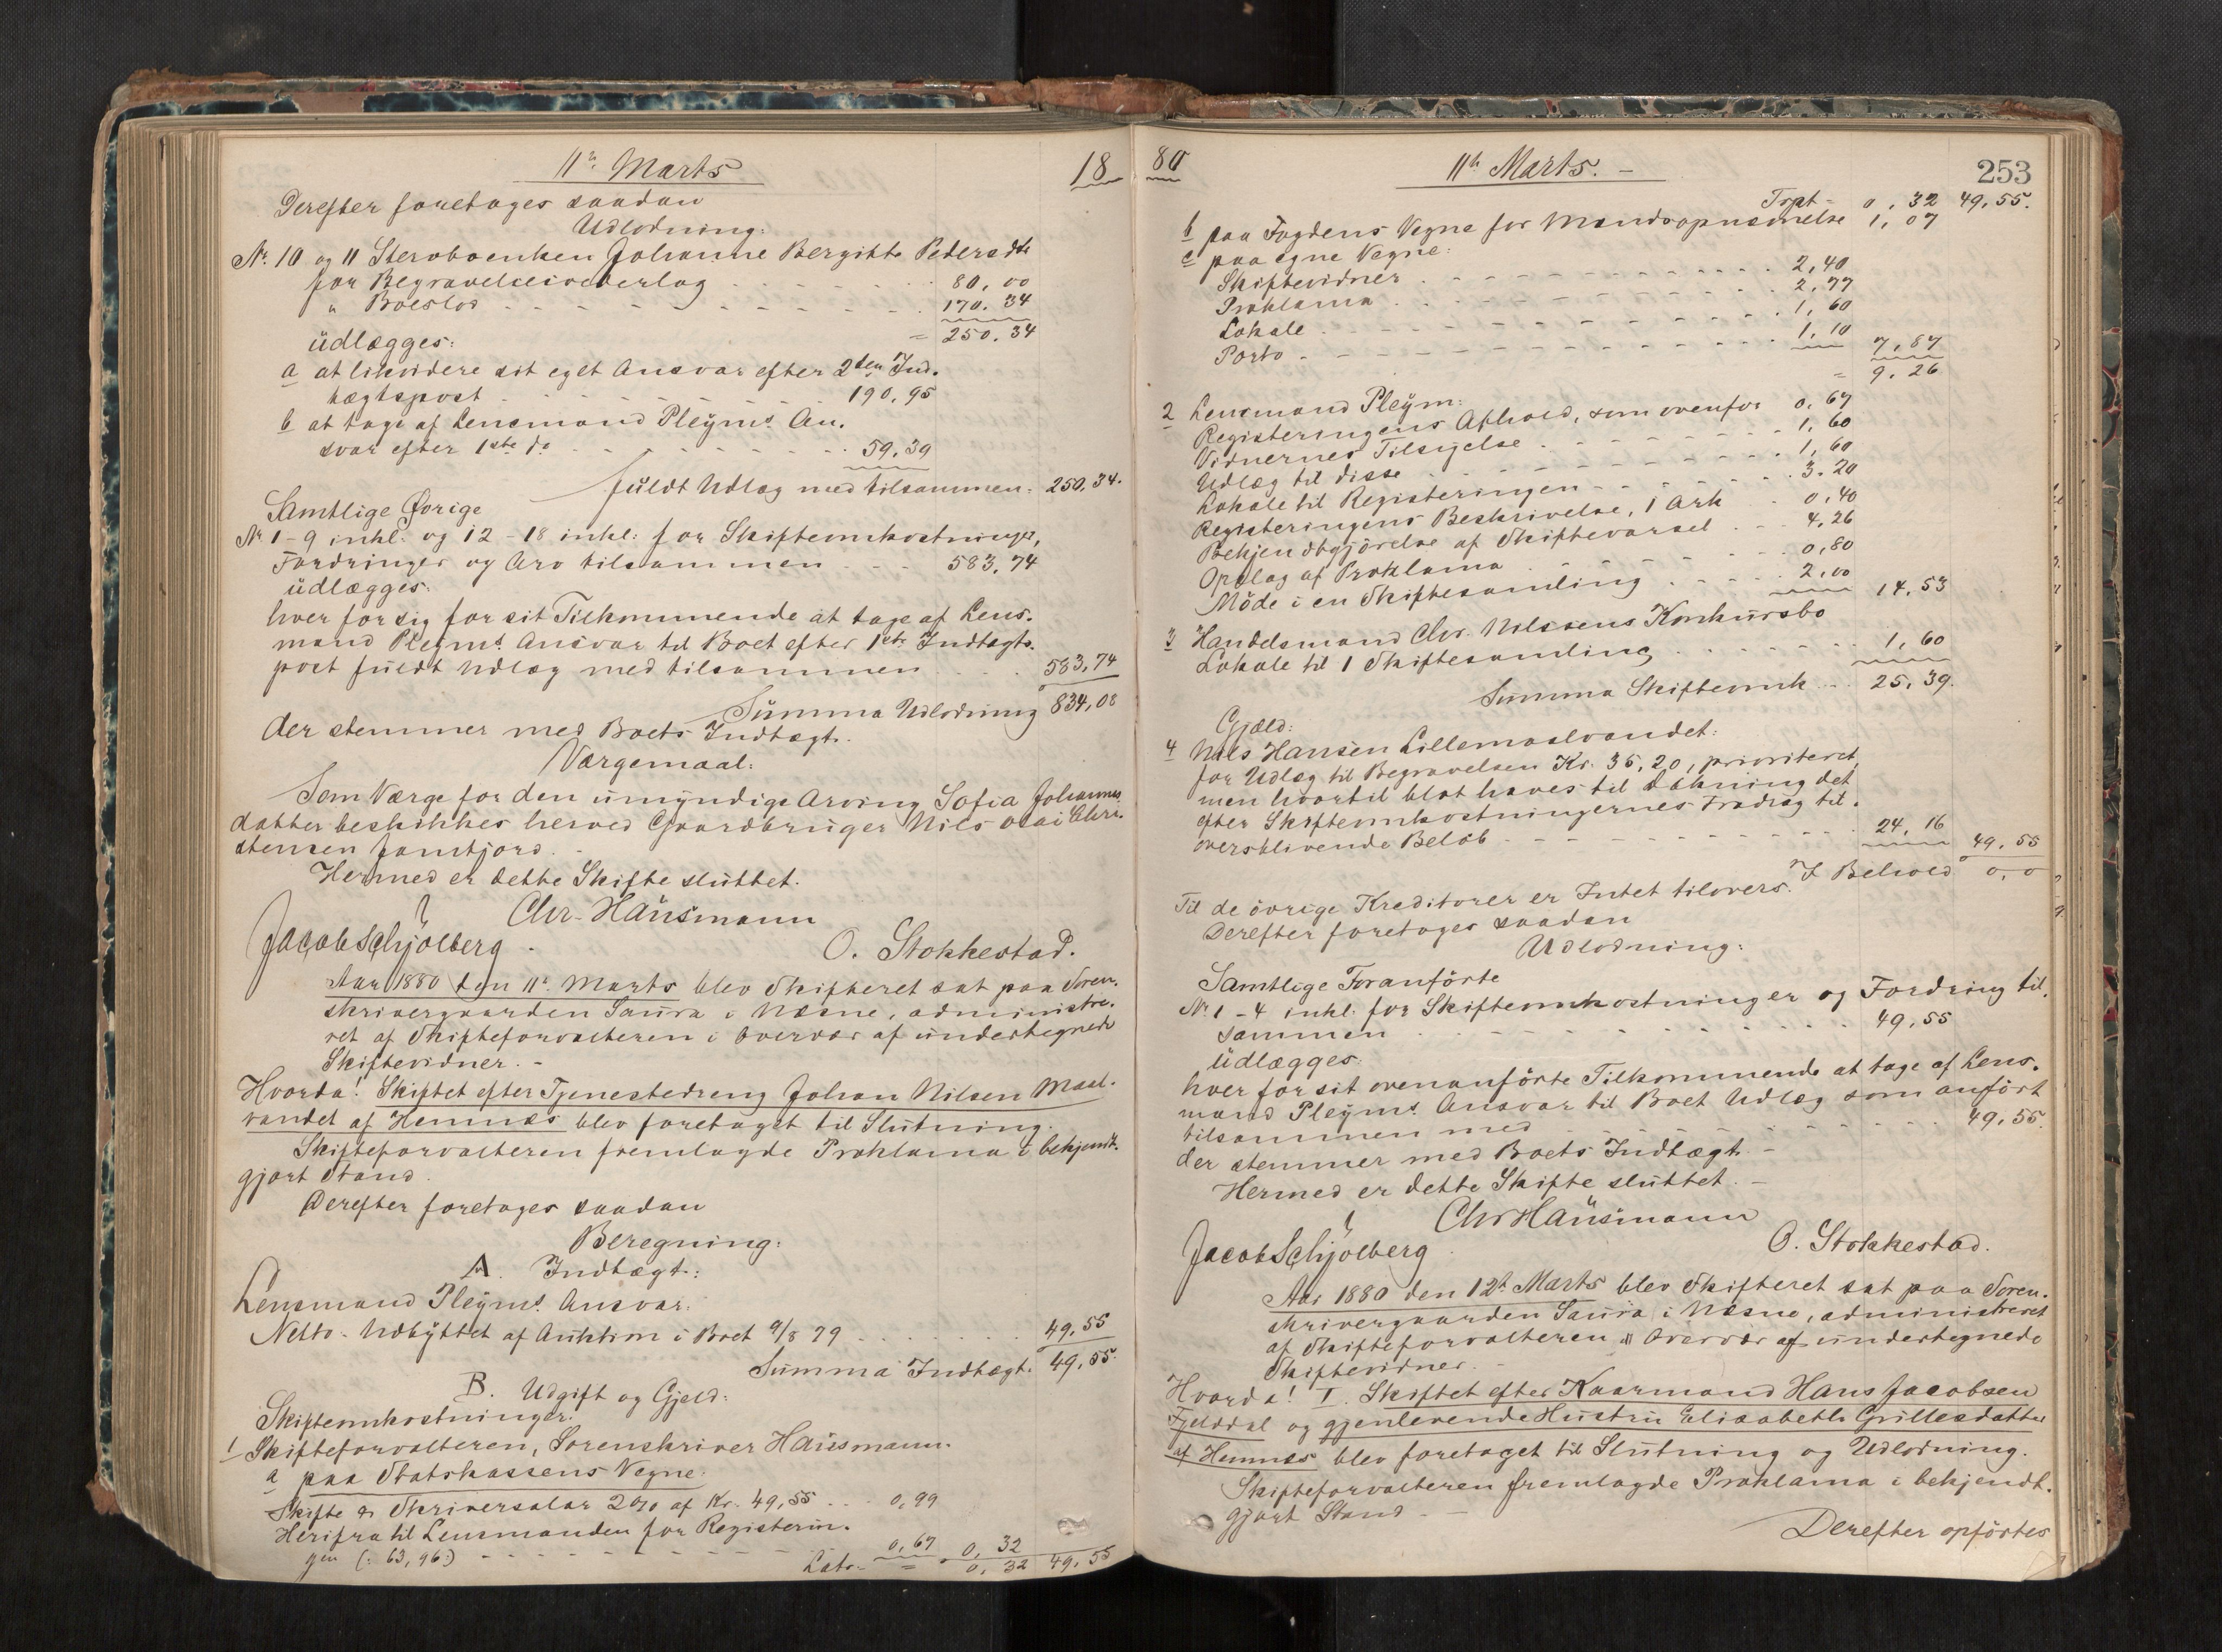 11te Marts
18
Derefter foretages saadan
Udlodning:
No. 10 og 11 Sterboenken Johanne Bergitte Pedersdtr
for Begravelsesvederlag 80,00
" Boeslod 170.34
udlægges: = 250.34
a at likvidere sit eget Ansvar efter 2den Ind-
tægtspost 190,95
b at tage af Lensmand Pleyms An-
svar efter 1ste do 59.39
fuldt Udlæg med tilsammen 250,34.
Samtlige Øvrige
No 1-9 inkl. og 12-18 inkl: for Skifteomkostninger,
Fordringer og Arv tilsammen 583,74
udlægges:
hver for sig for sit Tilkommende at tage af Lens-
mand Pleyms Ansvar til Boet efter 1ste Indtægts-
post fuldt Udlæg med tilsammen 583,74
Summa Udlodning 834,08
der stemmer med Boets Indtægt.
Værgemaal:
Som Værge for den umyndige Arving Sofia Johannes-
datter beskikkes herved Gaardbruger Nils Olai Chri-
stensen Jamtjord.
Hermed er dette Skifte sluttet.
Chr. Hausmann
Jacob Schjølberg
O. Stokkestad.
Aar 1880 den 11te Marts blev Skifteret sat paa Soren-
skrivergaarden Saura i Næsne, administre-
ret af Skifteforvalteren i Overvær af undertegnede
Skiftevidner. -
Hvorda! Skiftet efter Tjenestedreng Johan Nilsen Maal-
vandet af Hemnæs blev foretaget til Slutning.
Skifteforvalteren fremlagde Proklama i bekjendt-
gjort Stand.
Derefter foretages saadan
Beregning:
A. Indtægt:
Lensmand Pleyms Ansvar:
Netto-Udbyttet af Auktion i Boet 9/8 79 49,55
Summa Indtægt. 49,55.
B. Udgift og Gjeld:
Skifteomkostninger:
1 Skifteforvalteren, Sorenskriver Hausmann.
a paa Statskassens Vegne.
Skifte & Skriversalær 2% af Kr. 49,55 0,99
Herifra til Lensmanden for Registerin-
gen (: 63,96:) 0,67 0,32
Lats = 0,32 49,55
80
11te Marts. -
253
Trpt - 0,32 49,55.
b paa Fogdens Vegne for Mandsopnævnelse 1,07
c paa egne Vegne:
Skiftevidner 2,40
Proklama 2,77
Lokale 1,60
Porto 1,10 7,87
= 9,26
2 Lensmand Pleym:
Registeringens Afhold, som ovenfor 0,67
Vidnernes Tilsigelse 1,60
Udlæg til disse 1,60
Lokale til Registeringen 3.20
Registeringens Beskrivelse, 1 Ark 0,40
Bekjendtgjørelse af Skiftevarsel 4,26
Opslag af Proklama 0,80
Møde i en Skiftesamling 2,00 14,53
3 Handelsmand Chr. Nilssens Konkursbo
Lokale til 1 Skiftesamling 1,60
Summa Skifteomk. 25,39.
Gjæld:
4 Nils Hansen Lillemaalvandet:
for Udlæg til Begravelsen Kr. 35,20, prioriteret,
men hvortil blot haves til Dækning det
efter Skifteomkostningernes Fradrag til-
oversblivende Beløb 24,16 49,55
I Behold 0,0
Til de øvrige Kreditorer er Intet tilovers.
Derefter foretages saadan
Udlodning:
Samtlige Foranførte
No. 1-4 inkl: for Skifteomkostninger og Fordring til-
sammen 49,55
udlægges:
hver for sit ovenanførte Tilkommende at tage af Lens-
mand Pleyms Ansvar til Boet Udlæg som anført
tilsammen med 49,55.
der stemmer med Boets Indtægt. -
Hermed er dette Skifte sluttet. -
Chr Hausmann
Jacob Schjølberg
O. Stokkestad.
Aar 1880 den 12te Marts blev Skifteret sat paa Soren-
skrivergaarden Saura i Næsne, administreret
af Skifteforvalteren i Overvær af undertegnede
Skiftevidner. -
Hvorda! I. Skiftet efter Kaarmand Hans Jacobsen
Fjelddal og gjenlevende Hustru Elisabeth Grillesdatter
af Hemnes blev foretaget til Slutning og Udlodning.
Skifteforvalteren fremlagde Proklama i bekjendt-
gjort Stand. -
Derefter opførtes